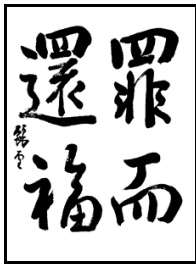 罪而
還福